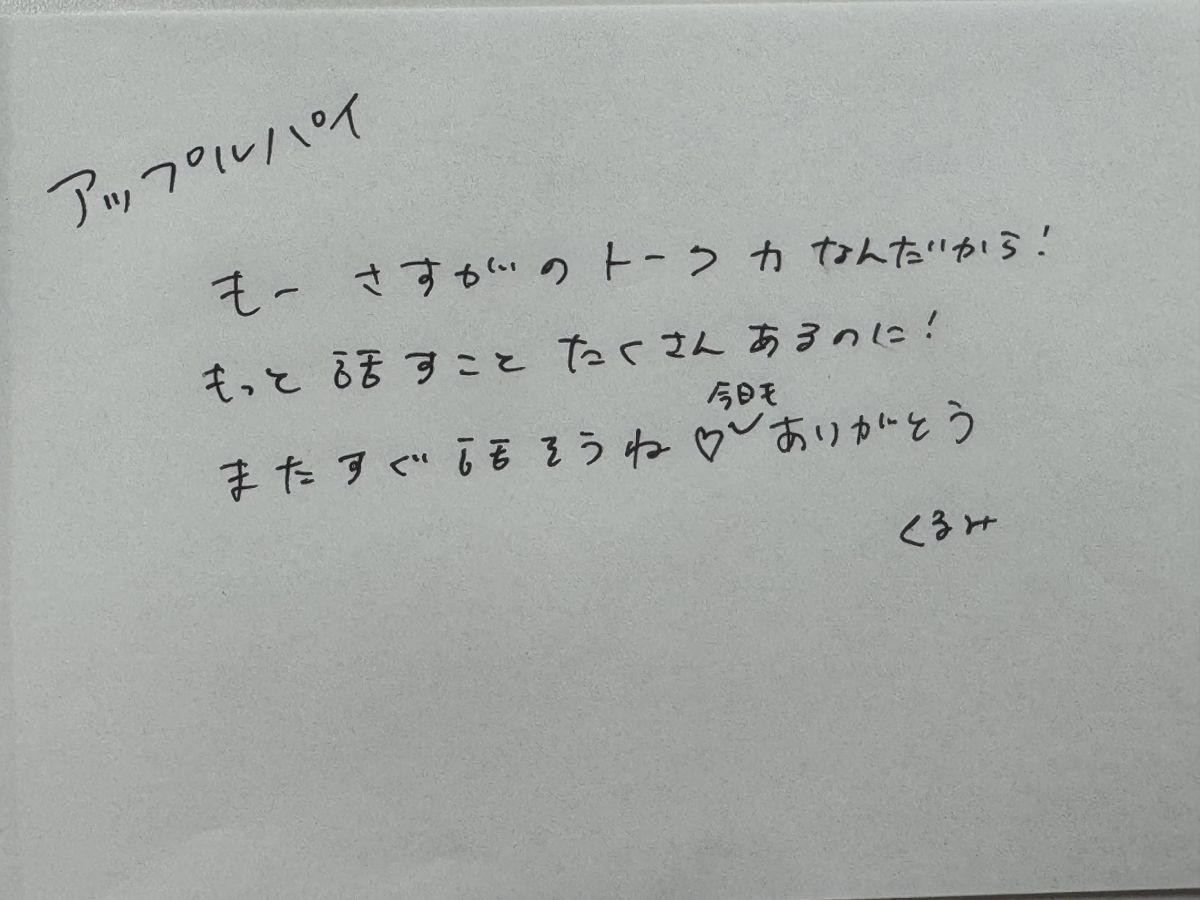 アップルパイ
もー さすがのトーク力なんだから!
もっと話すことたくさんあるのに!
またすぐ話そうね♡今日もありがとう
くるみ